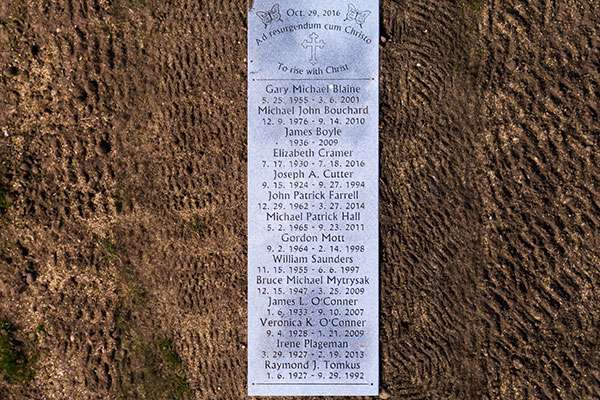 Oct. 29, 2016
Ad resurgendum cum Christo
To rise with Christ
Gary Michael Blaine
5. 25. 1955 - 3. 6. 2001
Michael John Bouchard
12. 9. 1976 - 9. 14. 2010
James Boyle
1936 - 2009
Elizabeth Cramer
7. 17. 1930 - 7. 18. 2016
Joseph A. Cutter
9. 15. 1924 - 9. 27. 1994
John Patrick Farrell
12. 29. 1962 - 3. 27. 2014
Michael Patrick Hall
5. 2. 1965 - 9. 23. 2011
Gordon Mott
9. 2. 1964 - 2. 14. 1998
William Saunders
11. 15. 1955 - 6. 6. 1997
Bruce Michael Mytrysak
12. 15. 1947 - 3. 25. 2009
James L. O'Conner
1. 6. 1933 - 9. 10. 2007
Veronica K. O'Conner
9. 4. 1928 - 1. 21. 2009
Irene Plageman
3. 29. 1927 - 2. 19. 2013
Raymond J. Tomkus
1. 6. 1927 - 9. 29. 1992